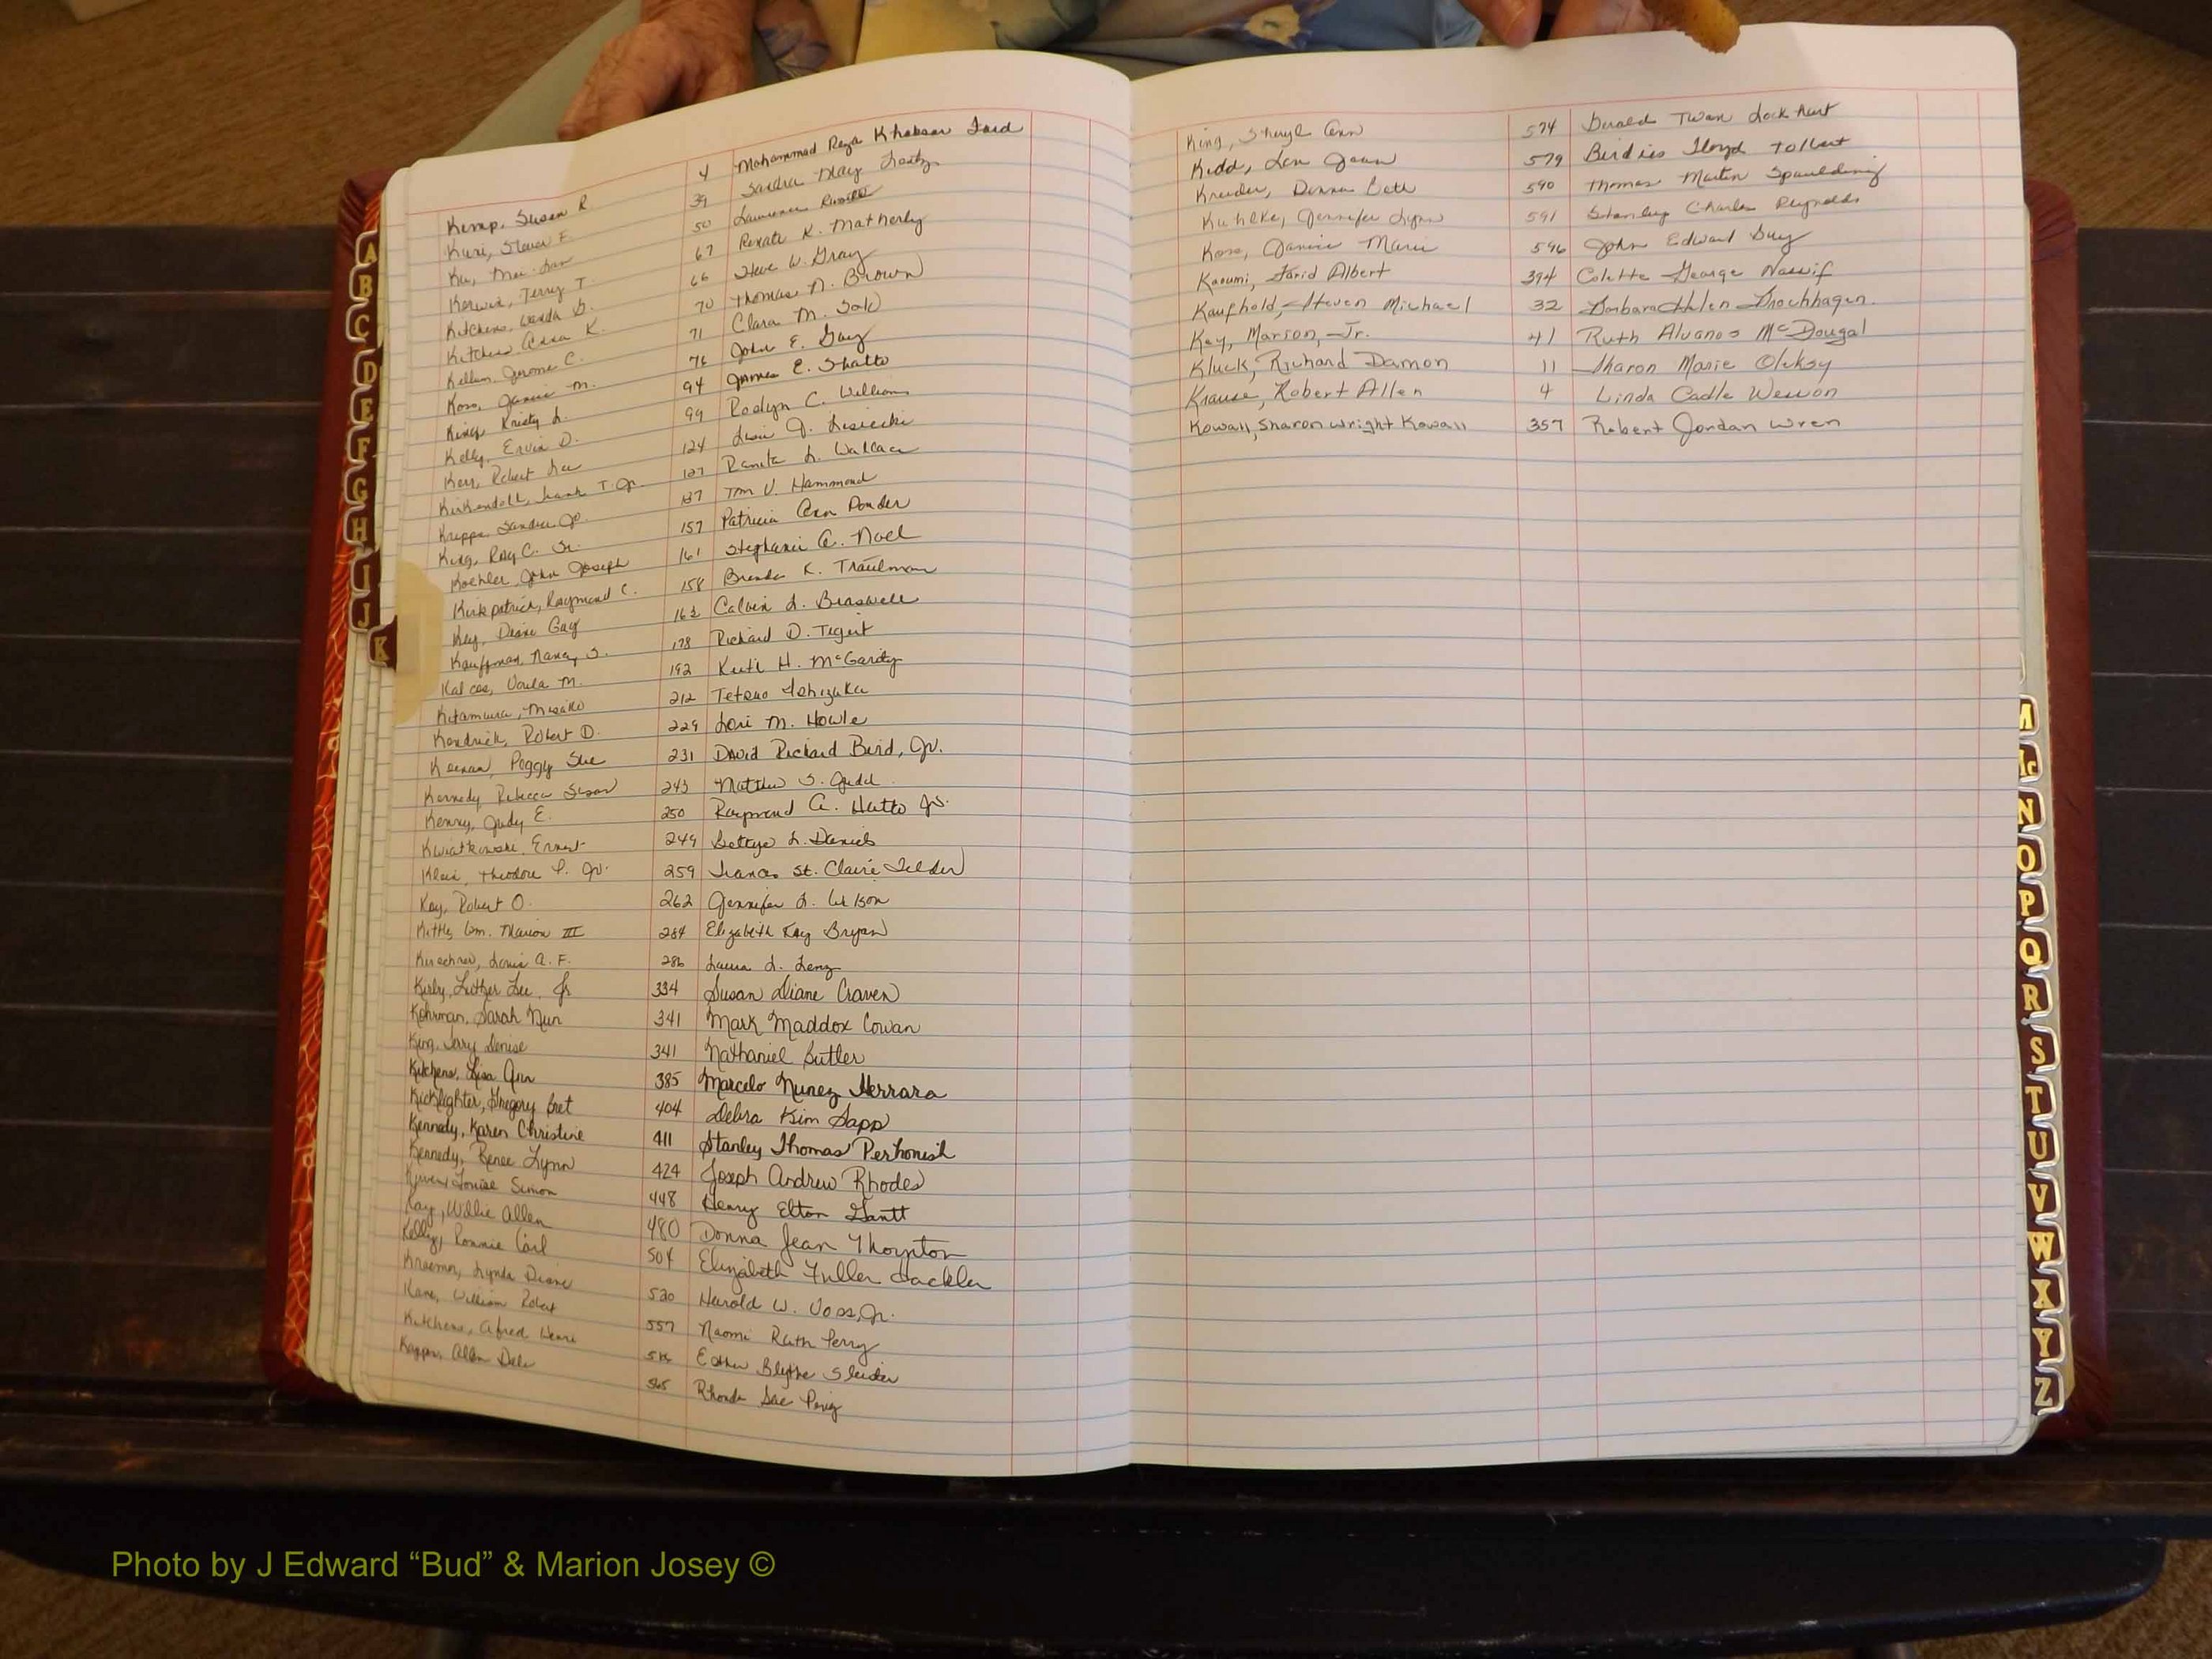 Kemp, Susan R 4 Mohammad Reza Khaksar Fard
Kuri, Steven F. 39 Sandra May
Ku, Mei 50 Laurence
Kerwin, Terry T. 67 Renate K. Matherly
Kitchens, Wanda G. 66 Steve W. Gray
Kitchens, Anna K. 70 Thomas N. Brown
Kellam, Jerome C. 71 Clara M.
Koss, Janice M. 76 John E. Guy
King, Kristy L. 94 James E. Shatto
Kelly, Ervin D. 99 Roslyn C. Williams
Kerr, Robert Lee 124 J. Lisiecki
Kirkendoll, Frank T. Jr. 127 Ranita L. Wallace
Sandra Jo. 137 Tom V. Hammond
King, Roy C. Sr. 157 Patricia Ann Ponder
Koehler, John Joseph 161 Stephanie A. Noel
Kirkpatrick, Raymond C. 158 Brenda K. Trautman
Key, Diane Gay 162 Calvin L. Braswell
Kauffman, Nancy S. 178 Richard D.
Voula M. 192 Keith H. McGarity
Kitamura, 212 Tetsuo Ishizuka
Kendrick, Robert D. 229 Lori M. Howle
Keenan, Peggy Sue 231 David Richard Bird, Jr.
Kennedy, Rebecca Susan 243 Matthew S. Judd
Kenny, Judy E. 250 Raymond A. Hatto Jr.
Kwiatkowski, Ernest 249 Bettye L. Daniels
Klein, Theodore P. Jr. 259 St. Claire
Kay, Robert O. 262 Jennifer L. Wilson
Kittle, Wm. Marion III 284 Elizabeth Kay Bryan
Louis A. F. 286 Laura L. Lenz
Kirby, Luther Lee, Jr 334 Susan Diane Craven
Kohrman, Sarah Nun 341 Mark Maddox Cowan
King, Denise 341 Nathaniel Butler
Kitchens, Lisa Ann 385 Marcelo Nunez Herrara
Kicklighter, Gregory Bret 404 Debra Kim Sapp
Kennedy, Karen Christine 411 Stanley Thomas Perhonish
Kennedy, Renee Lynn 424 Joseph Andrew Rhodes
Louise Simon 448 Henry Elton Gantt
Kay, Willie Allen 480 Donna Jean Thornton
Kelly, Ronnie Carl 504 Elizabeth Fuller Sackler
Lynda Diane 530 Harold W. Voss, Jr.
Kane, William Robert 557 Naomi Ruth Perry
Kitchens, Alfred Blythe
Allen Dale 565 Rhonda
King, Sheryl Ann 574 Twan Lockhart
Kidd, Jean 579 Birdies Floyd Tolbert
Kreider, Donna Beth 590 Thomas Martin Spaulding
Kuhlke, Jennifer Lynn 591 Stanley Charles Reynolds
Koss, Janice Marie 596 John Edward Guy
Karumi, Farid Albert 394 Colette George Nassif
Kaufhold, Steven Michael 32 Barbara Helen Brochhagen
Key, Marson, Jr. 41 Ruth Alvanos McDougal
Kluck, Richard Damon 11 Sharon Marie Oleksy
Krause, Robert Allen 4 Linda Cadle Wesson
Kowall, Sharon Wright Kowall 357 Robert Jordan Wren
A
B
C
D
E
F
G
H
I
J
K
M
Mc
N
O
P
Q
R
S
T
U
V
W
X
Y
Z
Photo by J Edward “Bud” & Marion Josey ©